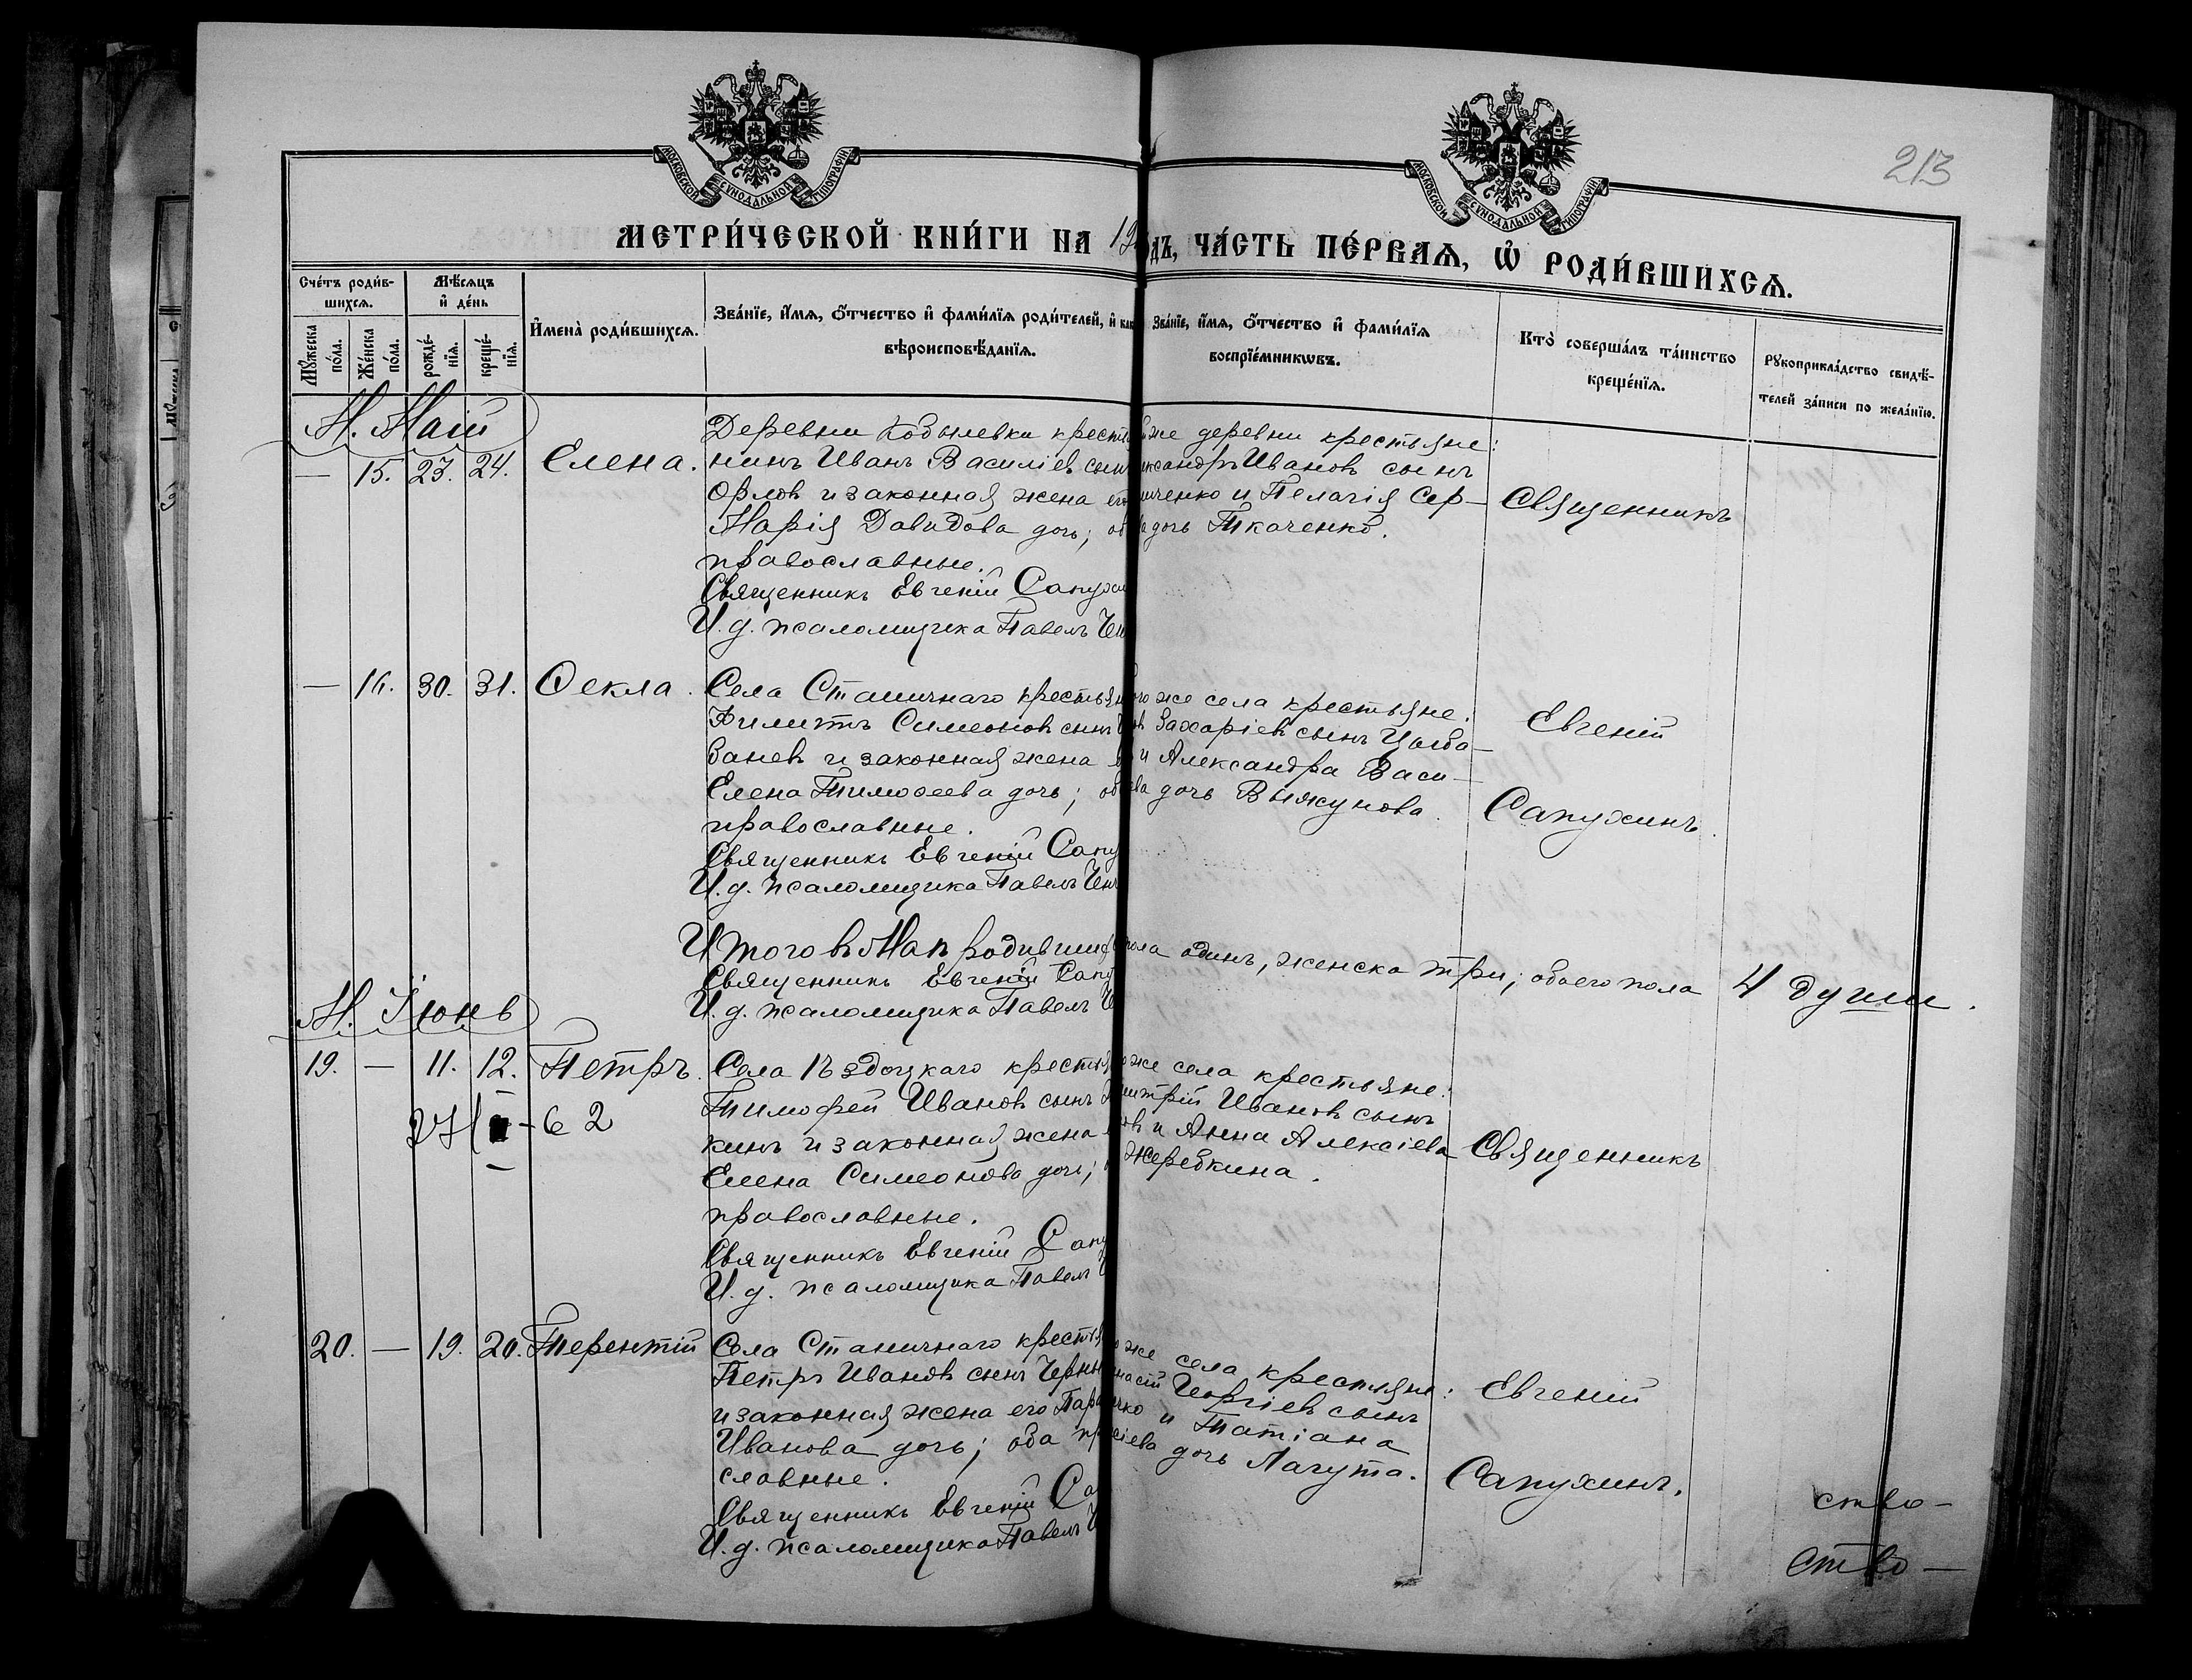 213
МОСКОВСКОЙ СУНОДАЛЬНОЙ ТИПОГРАФІИ
МОСКОВСКОЙ СУНОДАЛЬНОЙ ТИПОГРАФІИ
МЕТРИ́ЧЕСКОЙ КНИ́ГИ НА 19 ДЪ, ЧА́СТЬ ПЕ́РВАѦ, Ѽ РОДИ́ВШИХСѦ.
Сче́тъ роди́в-
шихсѧ.
Мꙋ́жеска по́ла.
Же́нска по́ла.
Мѣ́сѧцъ
и҆ де́нь
рожде́-
нїѧ.
креще́-
нїѧ.
И҆мена̀ роди́вшихсѧ.
Зва́нїе, и҆́мѧ, ѻ҆́тчество и҆ фами́лїѧ роди́телей, и҆
вѣроисповѣ́данїѧ.
Зва́нїе, и҆́мѧ, ѻ҆́тчество и҆ фами́лїѧ
воспрїе́мникѡвъ.
Кто̀ соверша́лъ та́инство
креще́нїѧ.
Рꙋкоприкла́дство свидѣ́-
телей за́писи по жела́нїю.
М. Май
— 15. 23. 24. Елена.
Деревни Кобылевки крестья
нинъ Иванъ Василіев сынъ
Орлов и законная жена его
Марія Давидова дочь; об
православные.
Священникъ Евгеній Сапухи
И. д. псаломщика Павелъ
же деревни крестьяне:
ксандръ Иванов сынъ
ченко и Пелагія Сер-
а дочь Ткаченко.
Священникъ
— 16. 30. 31. Ѳекла.
Села Станичнаго крестьян
Филиппъ Симеонов сынъ
банев и законная жена
Елена Тимоѳеева дочь; об
православные.
Священникъ Евгеній Сапу
И. д. псаломщика Павелъ
го же села крестьяне:
Захаріев сынъ Цыба-
и Александра Васи-
ева дочь Выжунова.
Евгеній
Сапухинъ.
Итого въ Маѣ родивших
пола одинъ, женска три; обоего пола 4 души.
Священникъ Евгеній Сапу
И. д. псаломщика Павелъ
М. Іюнь
19. — 11. 12. Петръ.
Села Ѣздоцкаго крестья
Тимофей Иванов сынъ
кинъ и законная жена
Елена Симеонова дочь;
православные.
Священникъ Евгеній Сапу
И. д. псаломщика Павелъ
же села крестьяне:
митрій Иванов сынъ
ов и Анна Алексіева
Жеребкина.
Священникъ
20. — 19. 20. Терентій
Села Станичнаго крестья
Петръ Иванов сынъ Черны
и законная жена его Пара
Иванова дочь; оба пр
славные.
Священникъ Евгеній Са
И. д. псаломщика Павелъ
же села крестьяне:
насій Георгіев сынъ
чко и Татіана
сіева дочь Лагута.
Евгеній
Сапухинъ.
ство —
ство —